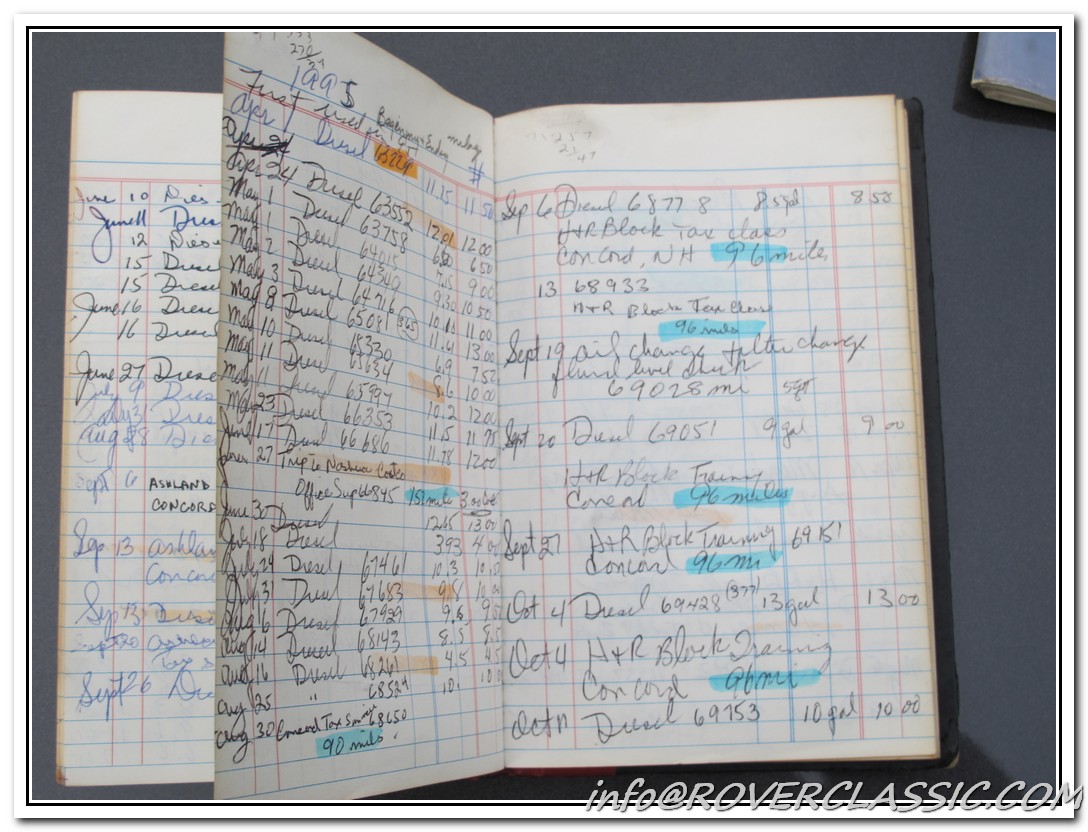 270
1995
First used in
Beginning + Ending milage
#
Apr 1 Diesel 11.25 11.50
Apr 24
Apr 24 Diesel 63552 12.01 12.00
May 1 Diesel 63758 6.50
May 1 Diesel 64015 7.5 9.00
May 2 Diesel 64340 9.30 10.50
May 3 Diesel 64716 11.00
May 8 Diesel 65081 (365) 11.4 13.00
May 10 Diesel 65330 6.9 7.52
May 11 Diesel 65634 8.6 10.00
May 11 Diesel 65997 10.2 12.00
May 23 Diesel 66353 11.15 11.75
June 17 Diesel 66686 11.78 12.00
June 27 Trip to Nashua Costco
Office Sup 66845 152 mile
June 30 Diesel 12.65 13.00
July 18 Diesel 3.93 4.00
July 24 Diesel 67461 10.3
July 31 Diesel 67683 9.8 10.00
Aug 6 Diesel 67929 9.6
Aug 14 Diesel 68143 8.5 8.5
Aug 16 Diesel 68261 4.5 4.5
Aug 25 " 68524 10.1
Aug 30 Concord Tax 68650
90 mile
June 10 Dies
June 11 Dies
12 Diese
15 Diese
15 Diese
June 16 Diese
16 Diese
June 27 Diese
July 9 Dies
July 31 Dies
Aug 28 Die
Sept 6 ASHLAND
CONCORD
Sep 13 Ashlan
Concord
Sep 13 Dies
Sept 20
Tax
Sept 26 Die
Sep 6 Diesel 68778 8.5 gal 8.50
H+R Block Tax Class
Concord, NH 96 miles
13 68933
H+R Block Tax Class
96 miles
Sept 19 oil change + filter change
fluid level check
69028 mi 5qt
Sept 20 Diesel 69051 9 gal 9 00
H+R Block Training
Concord 96 miles
Sept 27 H+R Block Training 69151
Concord 96 mi
Oct 4 Diesel 69428 (377) 13 gal 13.00
Oct 4 H+R Block Training
Concord 96 mi
Oct 11 Diesel 69753 10 gal 10 00
info@ROVERCLASSIC.COM